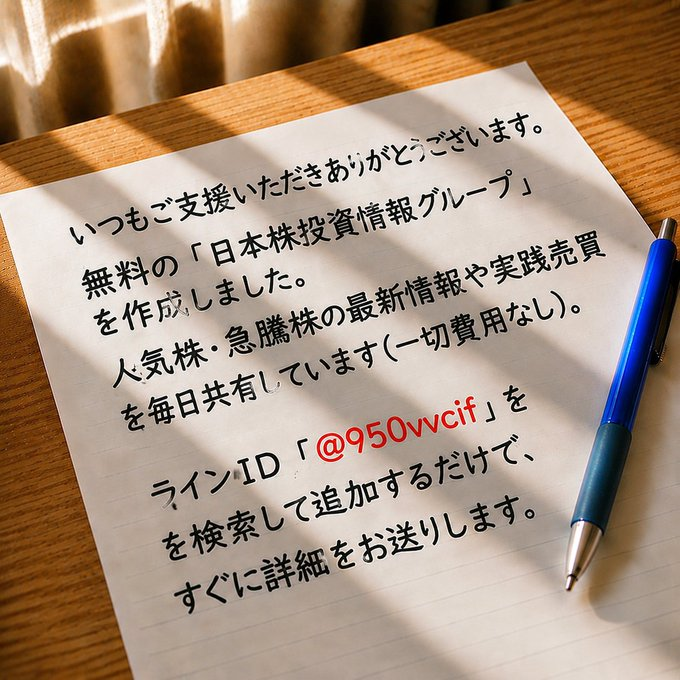 いつもご支援いただきありがとうございます。
無料の「日本株投資情報グループ」
を作成しました。
人気株・急騰株の最新情報や実践売買
を毎日共有しています(一切費用なし)。
ラインID「@950vvcif」を
を検索して追加するだけで、
すぐに詳細をお送りします。